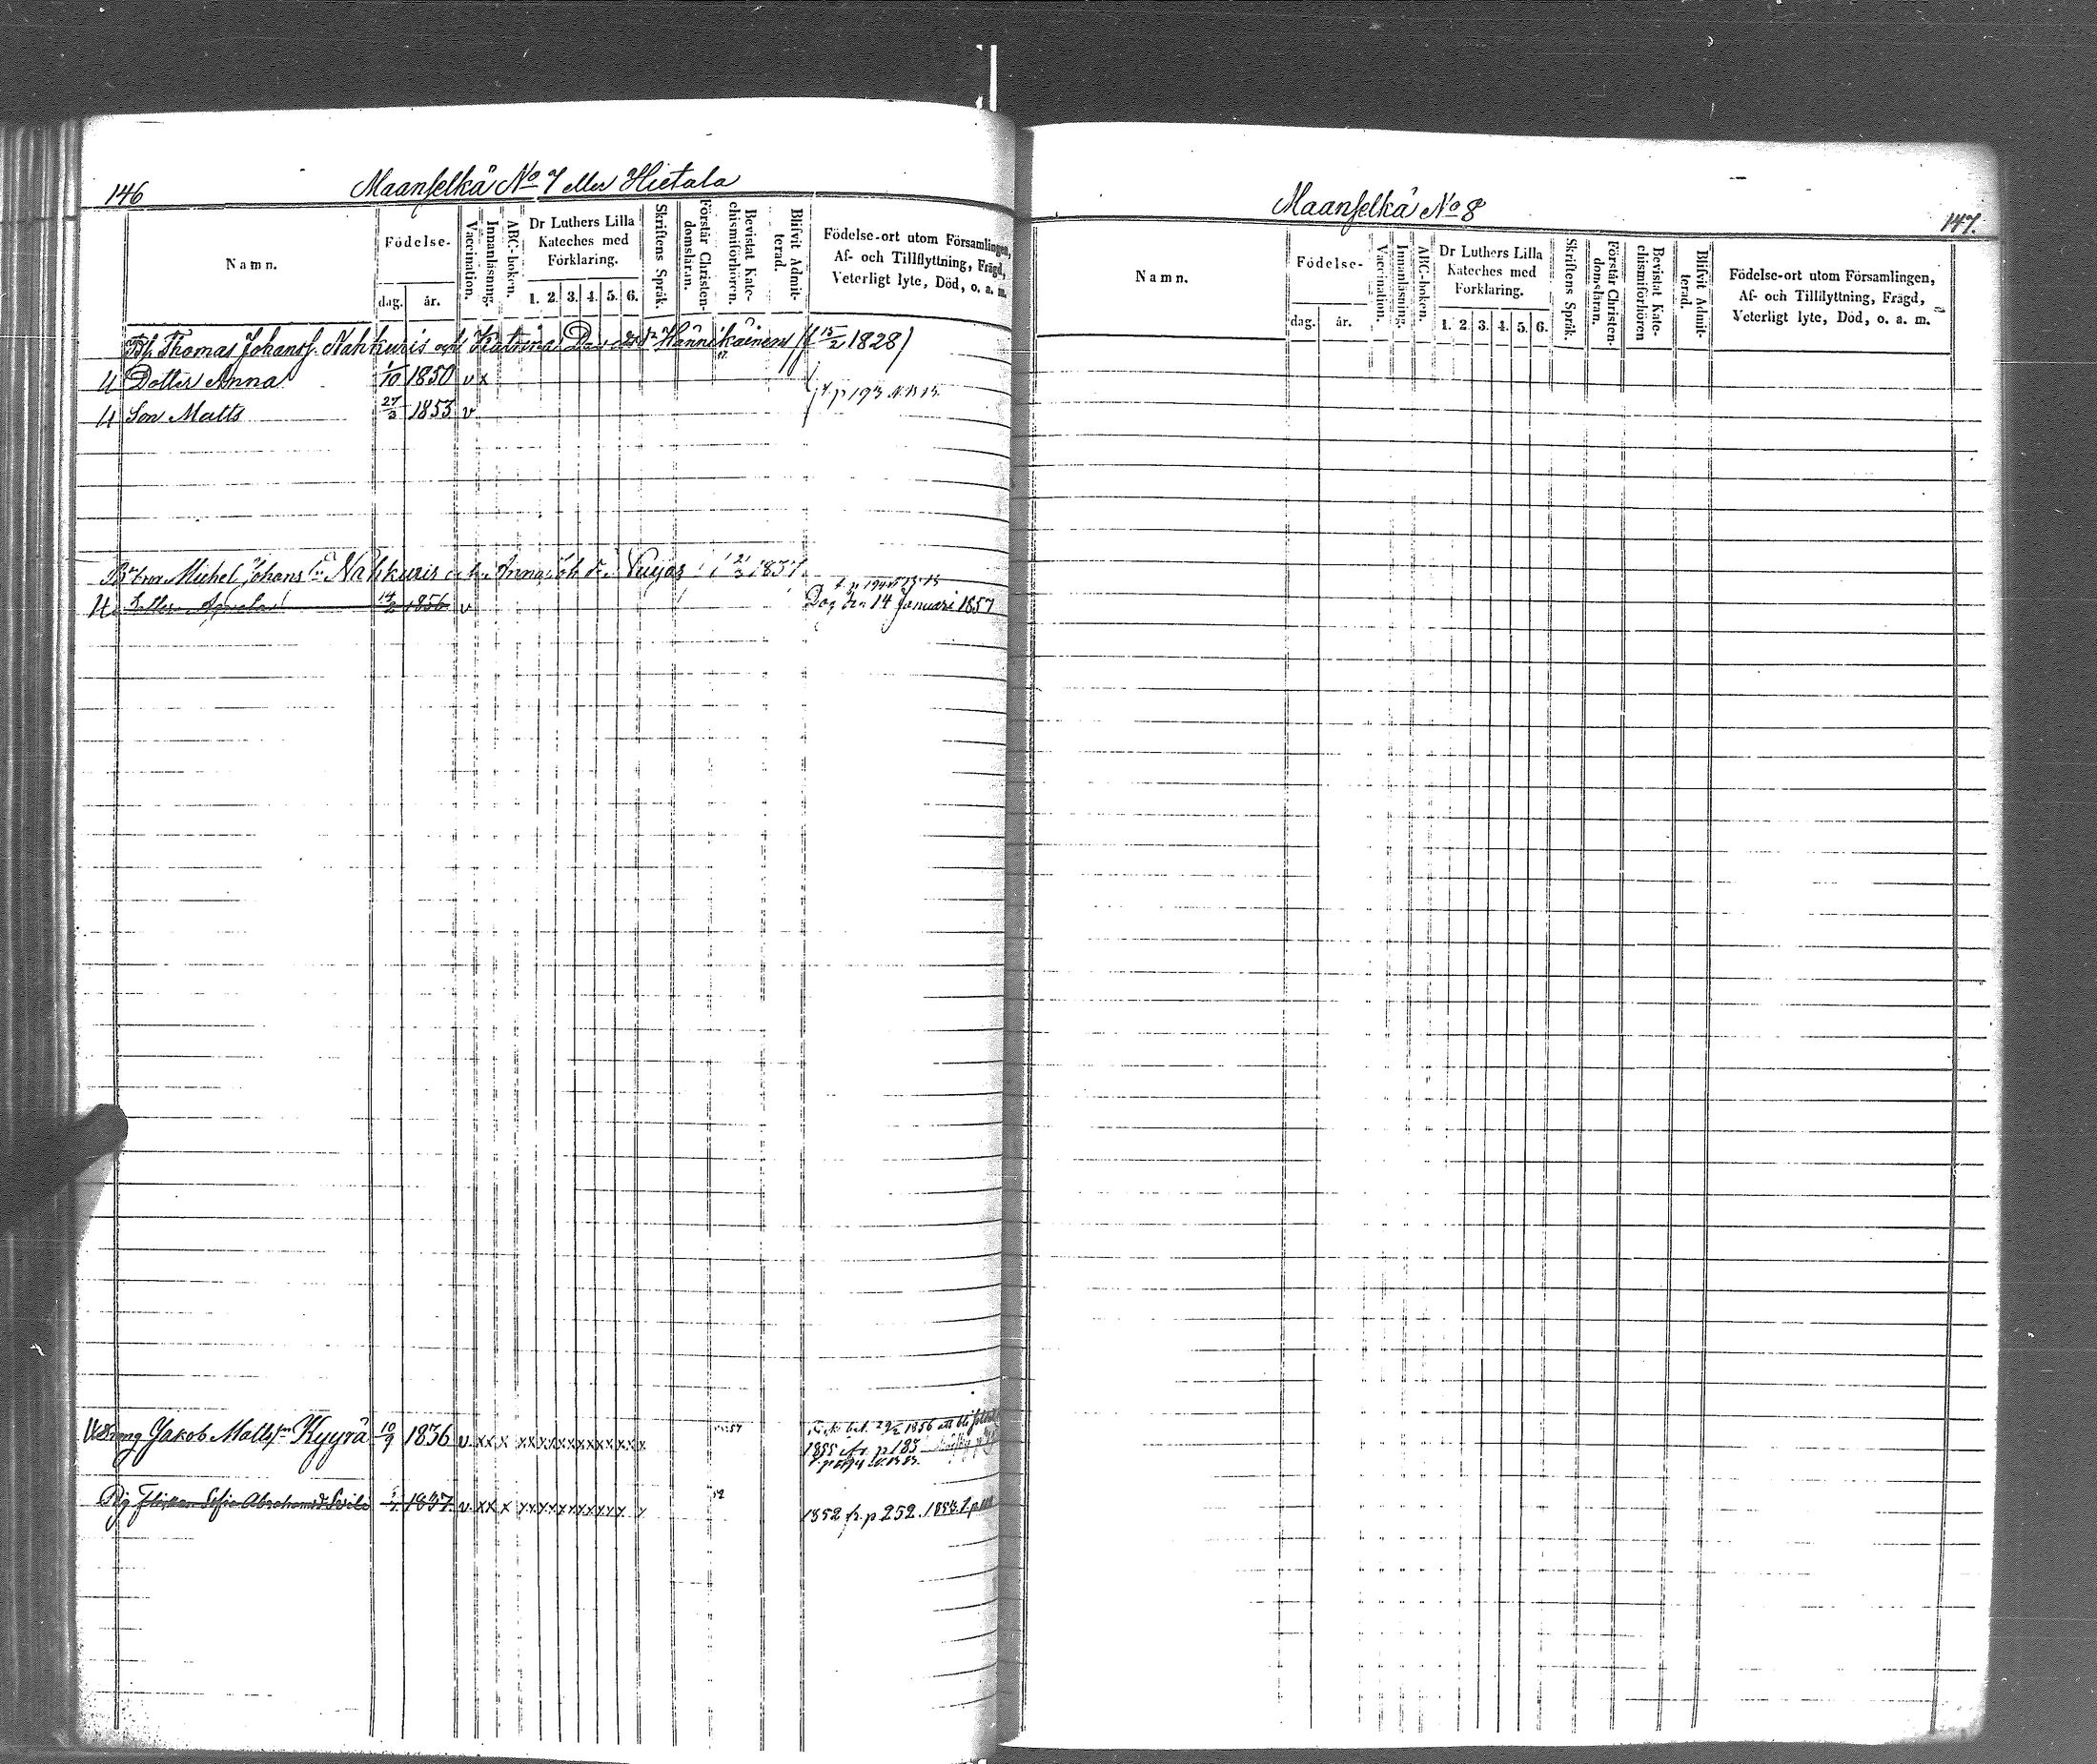 146
Maanselkä No 7 eller Hietala
Namn.
Födelse-
dag. år.
Vaccination.
Innanläsning.
ABC-boken.
Dr Luthers Lilla
Kateches med
Förklaring.
1. 2. 3. 4. 5. 6.
Skriftens Språk.
Förstår Christen-
domsläran.
Bevistat Kate-
chismiförhören.
Blifvit Admit-
terad.
Födelse-ort utom Församlingen,
Af- och Tillflyttning, Frägd,
Veterligt lyte, Död, o. a. m.
Thomas Johanss. Nahkuris och Katrina Hännikäinen (f 15/2 1828)
U Dotter Anna 1/10 1850 v x
U Son Matts 27/3 1853 v
p 193
Michel Johans Nahkuris och Anna Vuijas 1837
U 14/2 1856 v Dog den 14 Januari 1857
Dreng Jakob Matts Kyyrä 10/9 1836 v xx x xxxxxxxxxxxx x 57
1856 att bli
1855 p 183
Pig Sofia Abrahamsd. 1837 v xx x xxxxxxxxxxx x 52 1852 fr. p 252. 1853.
Maanselkä No 8
147.
Namn.
Födelse-
dag. år.
Vaccination.
Innanläsning.
ABC-boken.
Dr Luthers Lilla
Kateches med
Förklaring.
1. 2. 3. 4. 5. 6.
Skriftens Språk.
Förstår Christen-
domsläran.
Bevistat Kate-
chismiförhören
Blifvit Admit-
terad.
Födelse-ort utom Församlingen,
Af- och Tillflyttning, Frägd,
Veterligt lyte, Död, o. a. m.